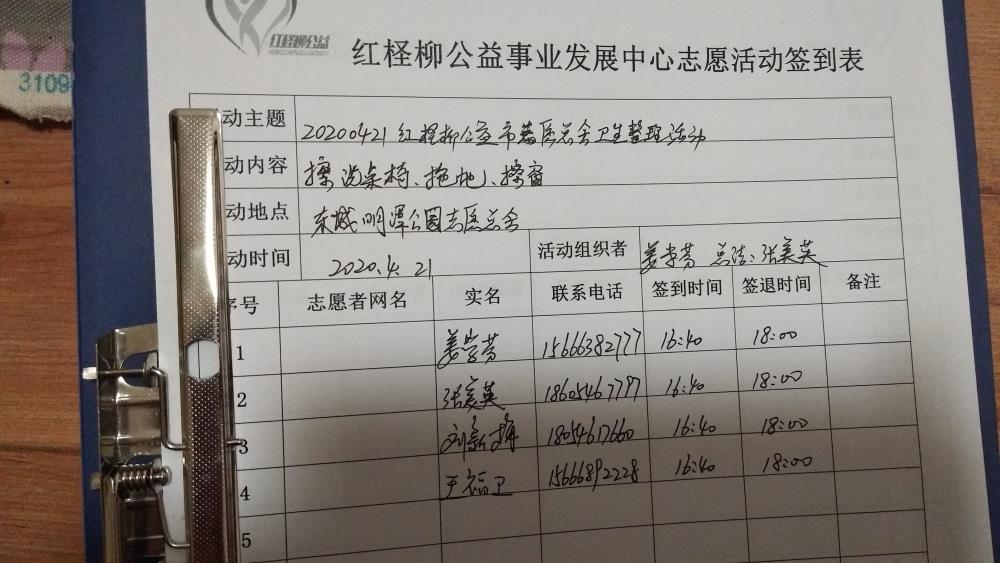 红柽柳公益
3109
红柽柳公益事业发展中心志愿活动签到表
动主题 20200421红柽柳公益市志医总舍卫生整理活动
动内容 擦洗桌椅、拖地、擦窗
动地点 东城明潭公园志医总舍
动时间 2020.4.21 活动组织者 姜学芬 总结:张美英
序号 志愿者网名 实名 联系电话 签到时间 签退时间 备注
1 姜学芬 15666382777 16:40 18:00
2 张美英 18605467797 16:40 18:00
3 刘新梅 18054617660 16:40 18:00
4 于福卫 15666892228 16:40 18:00
5